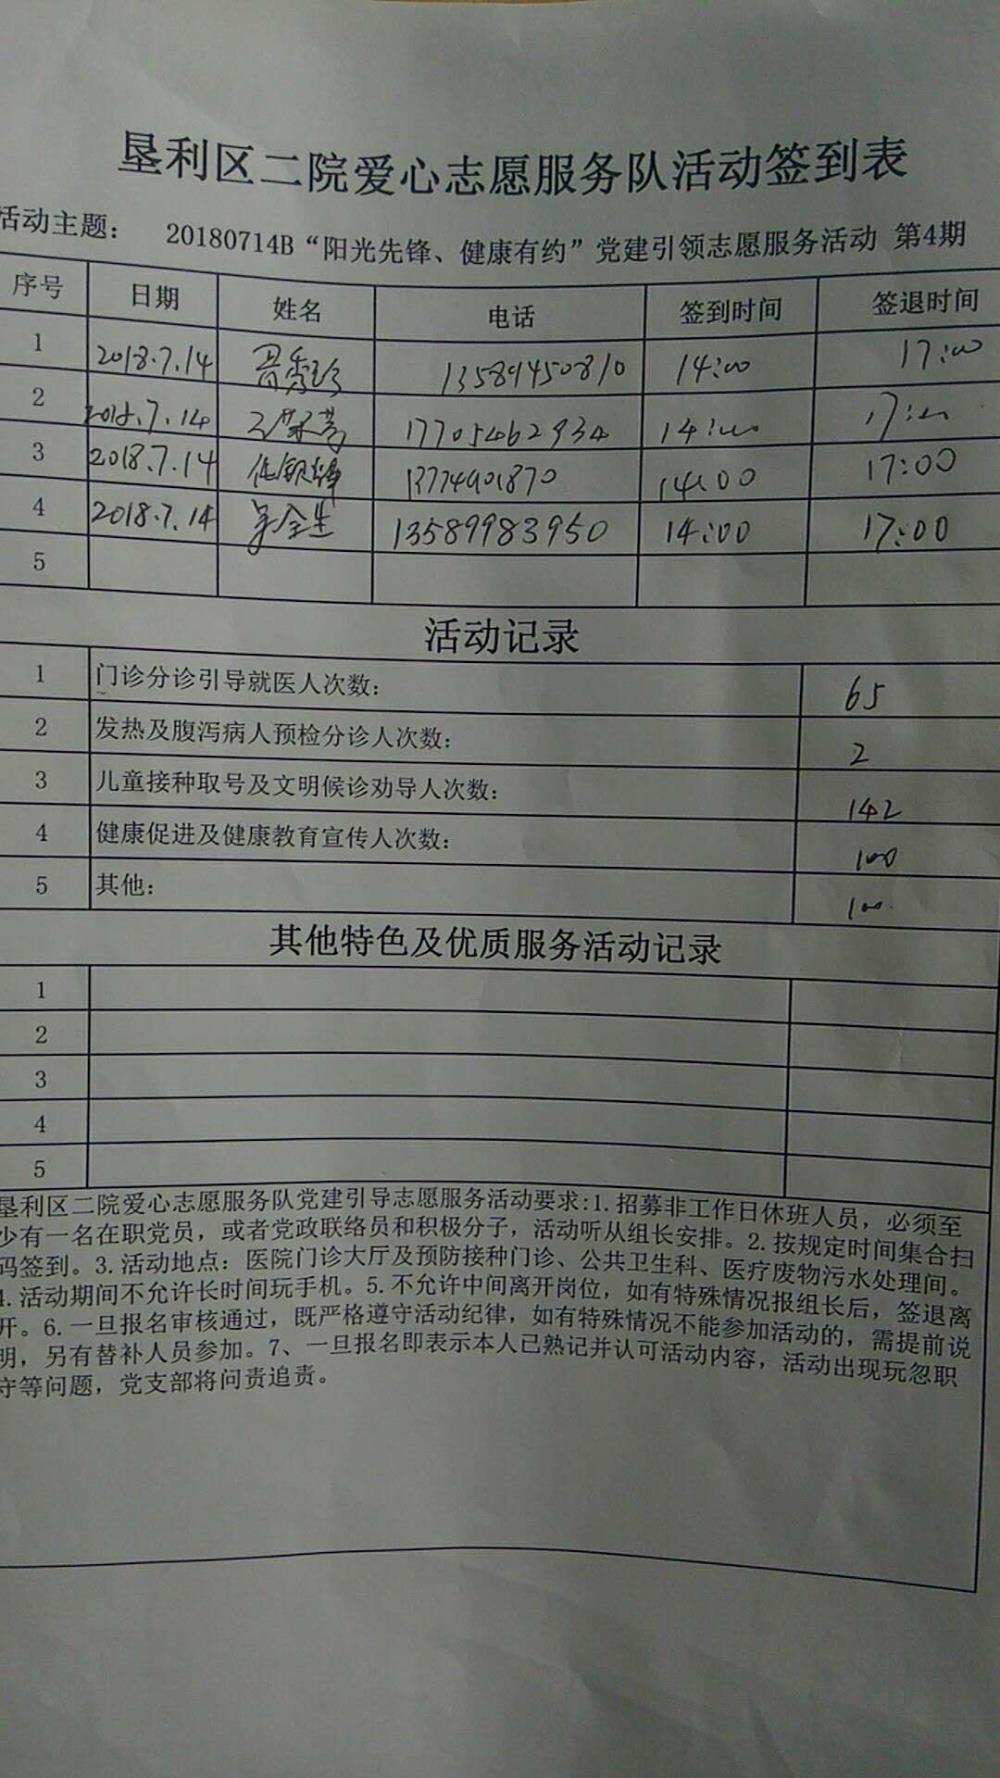 垦利区二院爱心志愿服务队活动签到表
活动主题： 20180714B“阳光先锋、健康有约”党建引领志愿服务活动 第4期
序号 日期 姓名 电话 签到时间 签退时间
1 2018.7.14 13589450810 14:00 17:00
2 2018.7.14 17705462934 14:00 17:00
3 2018.7.14 13774901870 14:00 17:00
4 2018.7.14 吴全生 13589983950 14:00 17:00
5
活动记录
1 门诊分诊引导就医人次数： 65
2 发热及腹泻病人预检分诊人次数： 2
3 儿童接种取号及文明候诊劝导人次数： 142
4 健康促进及健康教育宣传人次数： 100
5 其他： 100
其他特色及优质服务活动记录
1
2
3
4
5
垦利区二院爱心志愿服务队党建引导志愿服务活动要求:1.招募非工作日休班人员，必须至
少有一名在职党员，或者党政联络员和积极分子，活动听从组长安排。2.按规定时间集合扫
码签到。3.活动地点：医院门诊大厅及预防接种门诊、公共卫生科、医疗废物污水处理间。
4.活动期间不允许长时间玩手机。5.不允许中间离开岗位，如有特殊情况报组长后，签退离
开。6.一旦报名审核通过，既严格遵守活动纪律，如有特殊情况不能参加活动的，需提前说
明，另有替补人员参加。7、一旦报名即表示本人已熟记并认可活动内容，活动出现玩忽职
守等问题，党支部将问责追责。